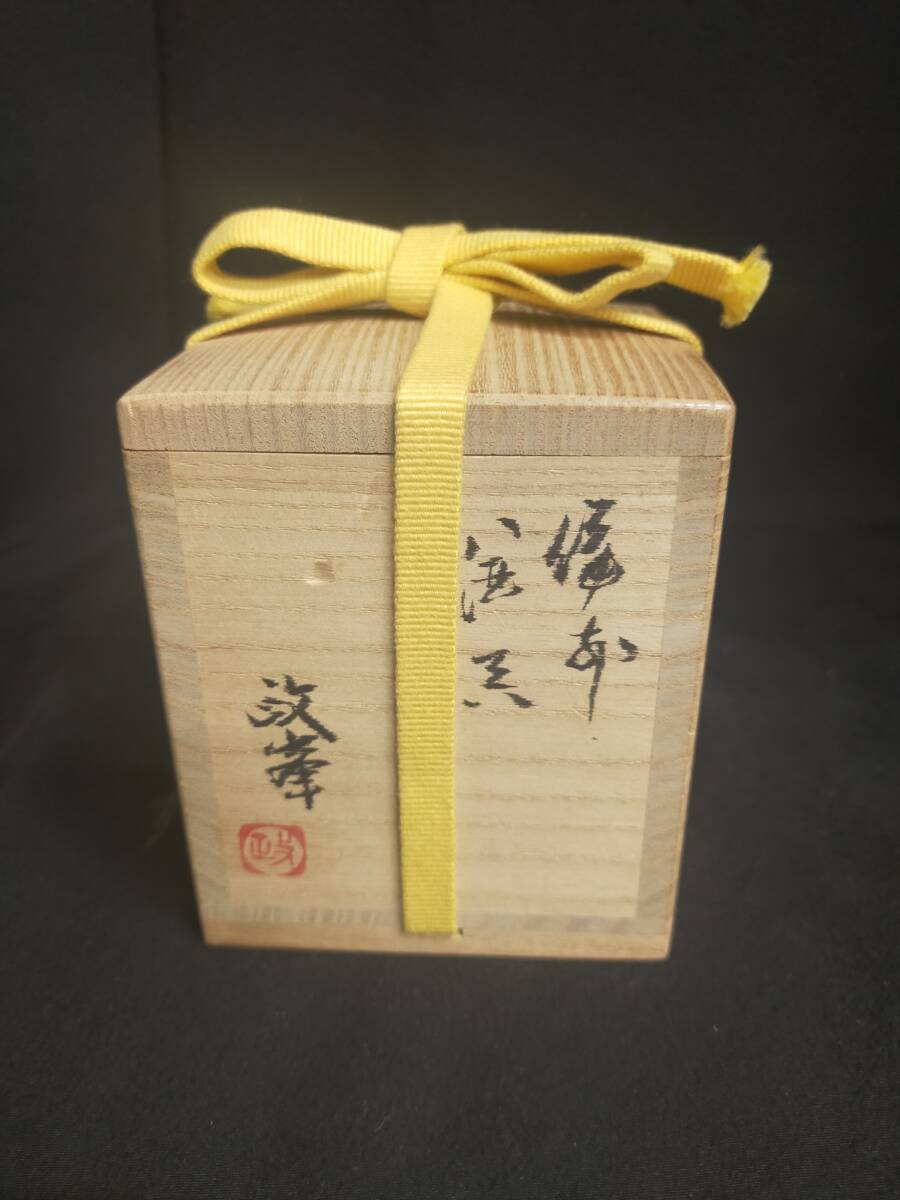 備前
酒呑
政峯
政